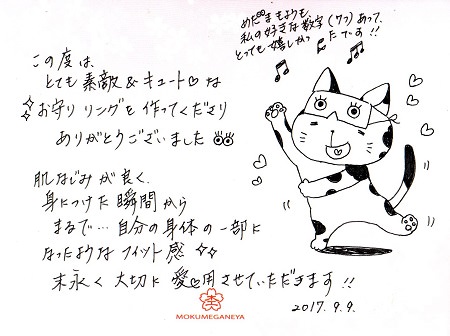 めだまもようも、
私の好きな数字(7つ)あって、
とっても嬉しかったです!!
この度は、
とても素敵&キュート♡な
お守りリングを作ってくださり
ありがとうございました
肌なじみが良く、
身につけた瞬間から
まるで…自分の身体の一部に
なったようなフィット感
末永く大切に愛♡用させていただきます!!
2017.9.9.
MOKUMEGANEYA